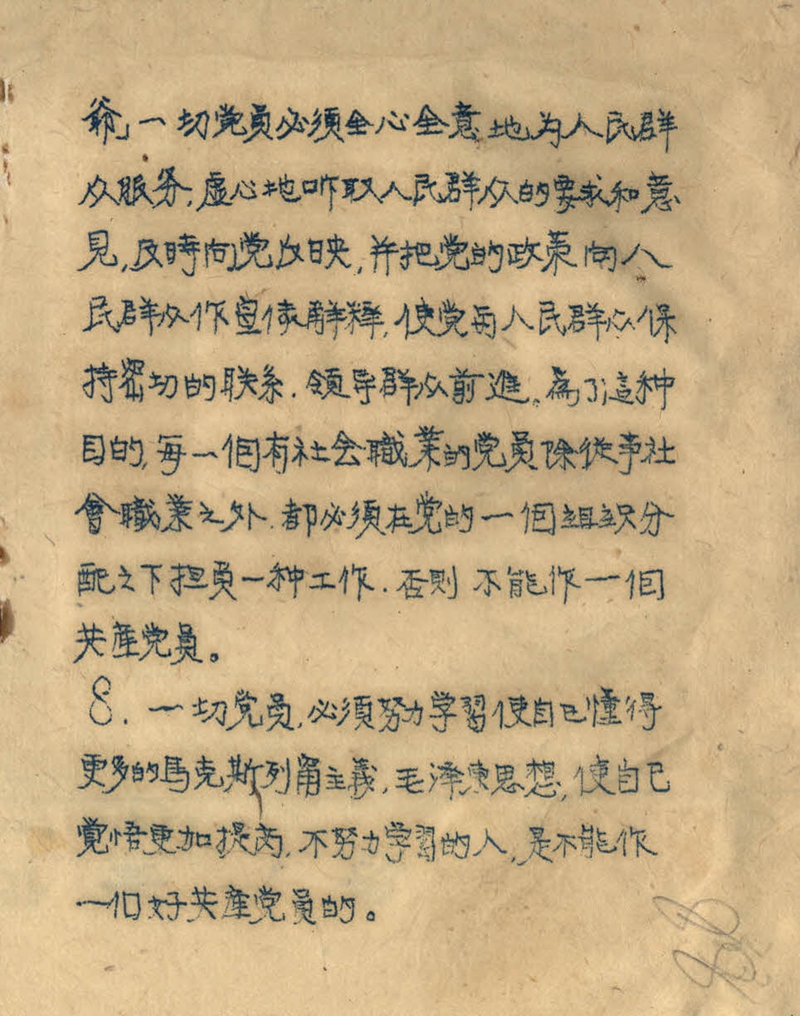 爺」一切党員必須全心全意地为人民群
众服务,虚心地听取人民群众的要求和意
見,及時向党反映,并把党的政策向人
民群众作宣傳解釋,使党和人民群众保
持密切的联系.領导群众前進。為了這种
目的,每一個有社会職業的党員除從事社
會職業之外.都必須在党的一個組织分
配之下担負一种工作.否則不能作一個
共產党員。
8.一切党員,必須努力学習使自己懂得
更多的馬克斯列甯主義,毛泽東思想,使自己
覺悟更加提高,不努力学習的人,是不能作
一個好共產党員的。